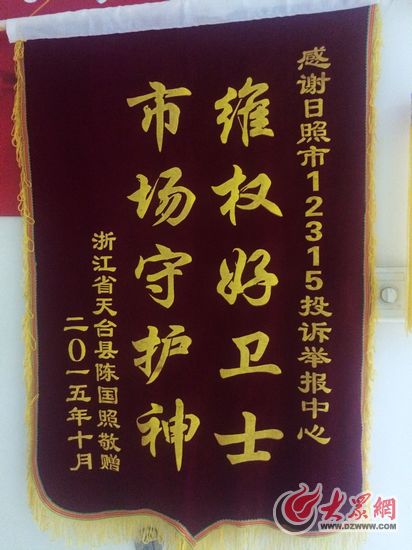 感谢日照市12315投诉举报中心
维权好卫士
市场守护神
浙江省天台县陈国照敬赠
二〇一五年十月
大众網
www.dzwww.com